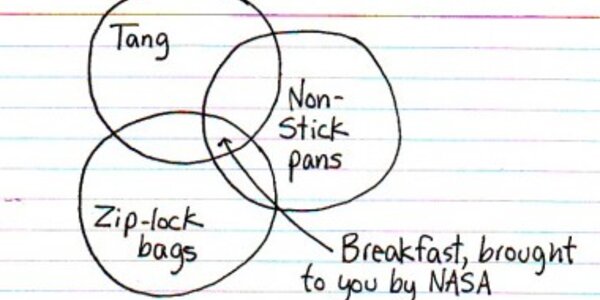 Tang
Non-
Stick
pans
Zip-lock
bags
Breakfast, brought
to you by NASA